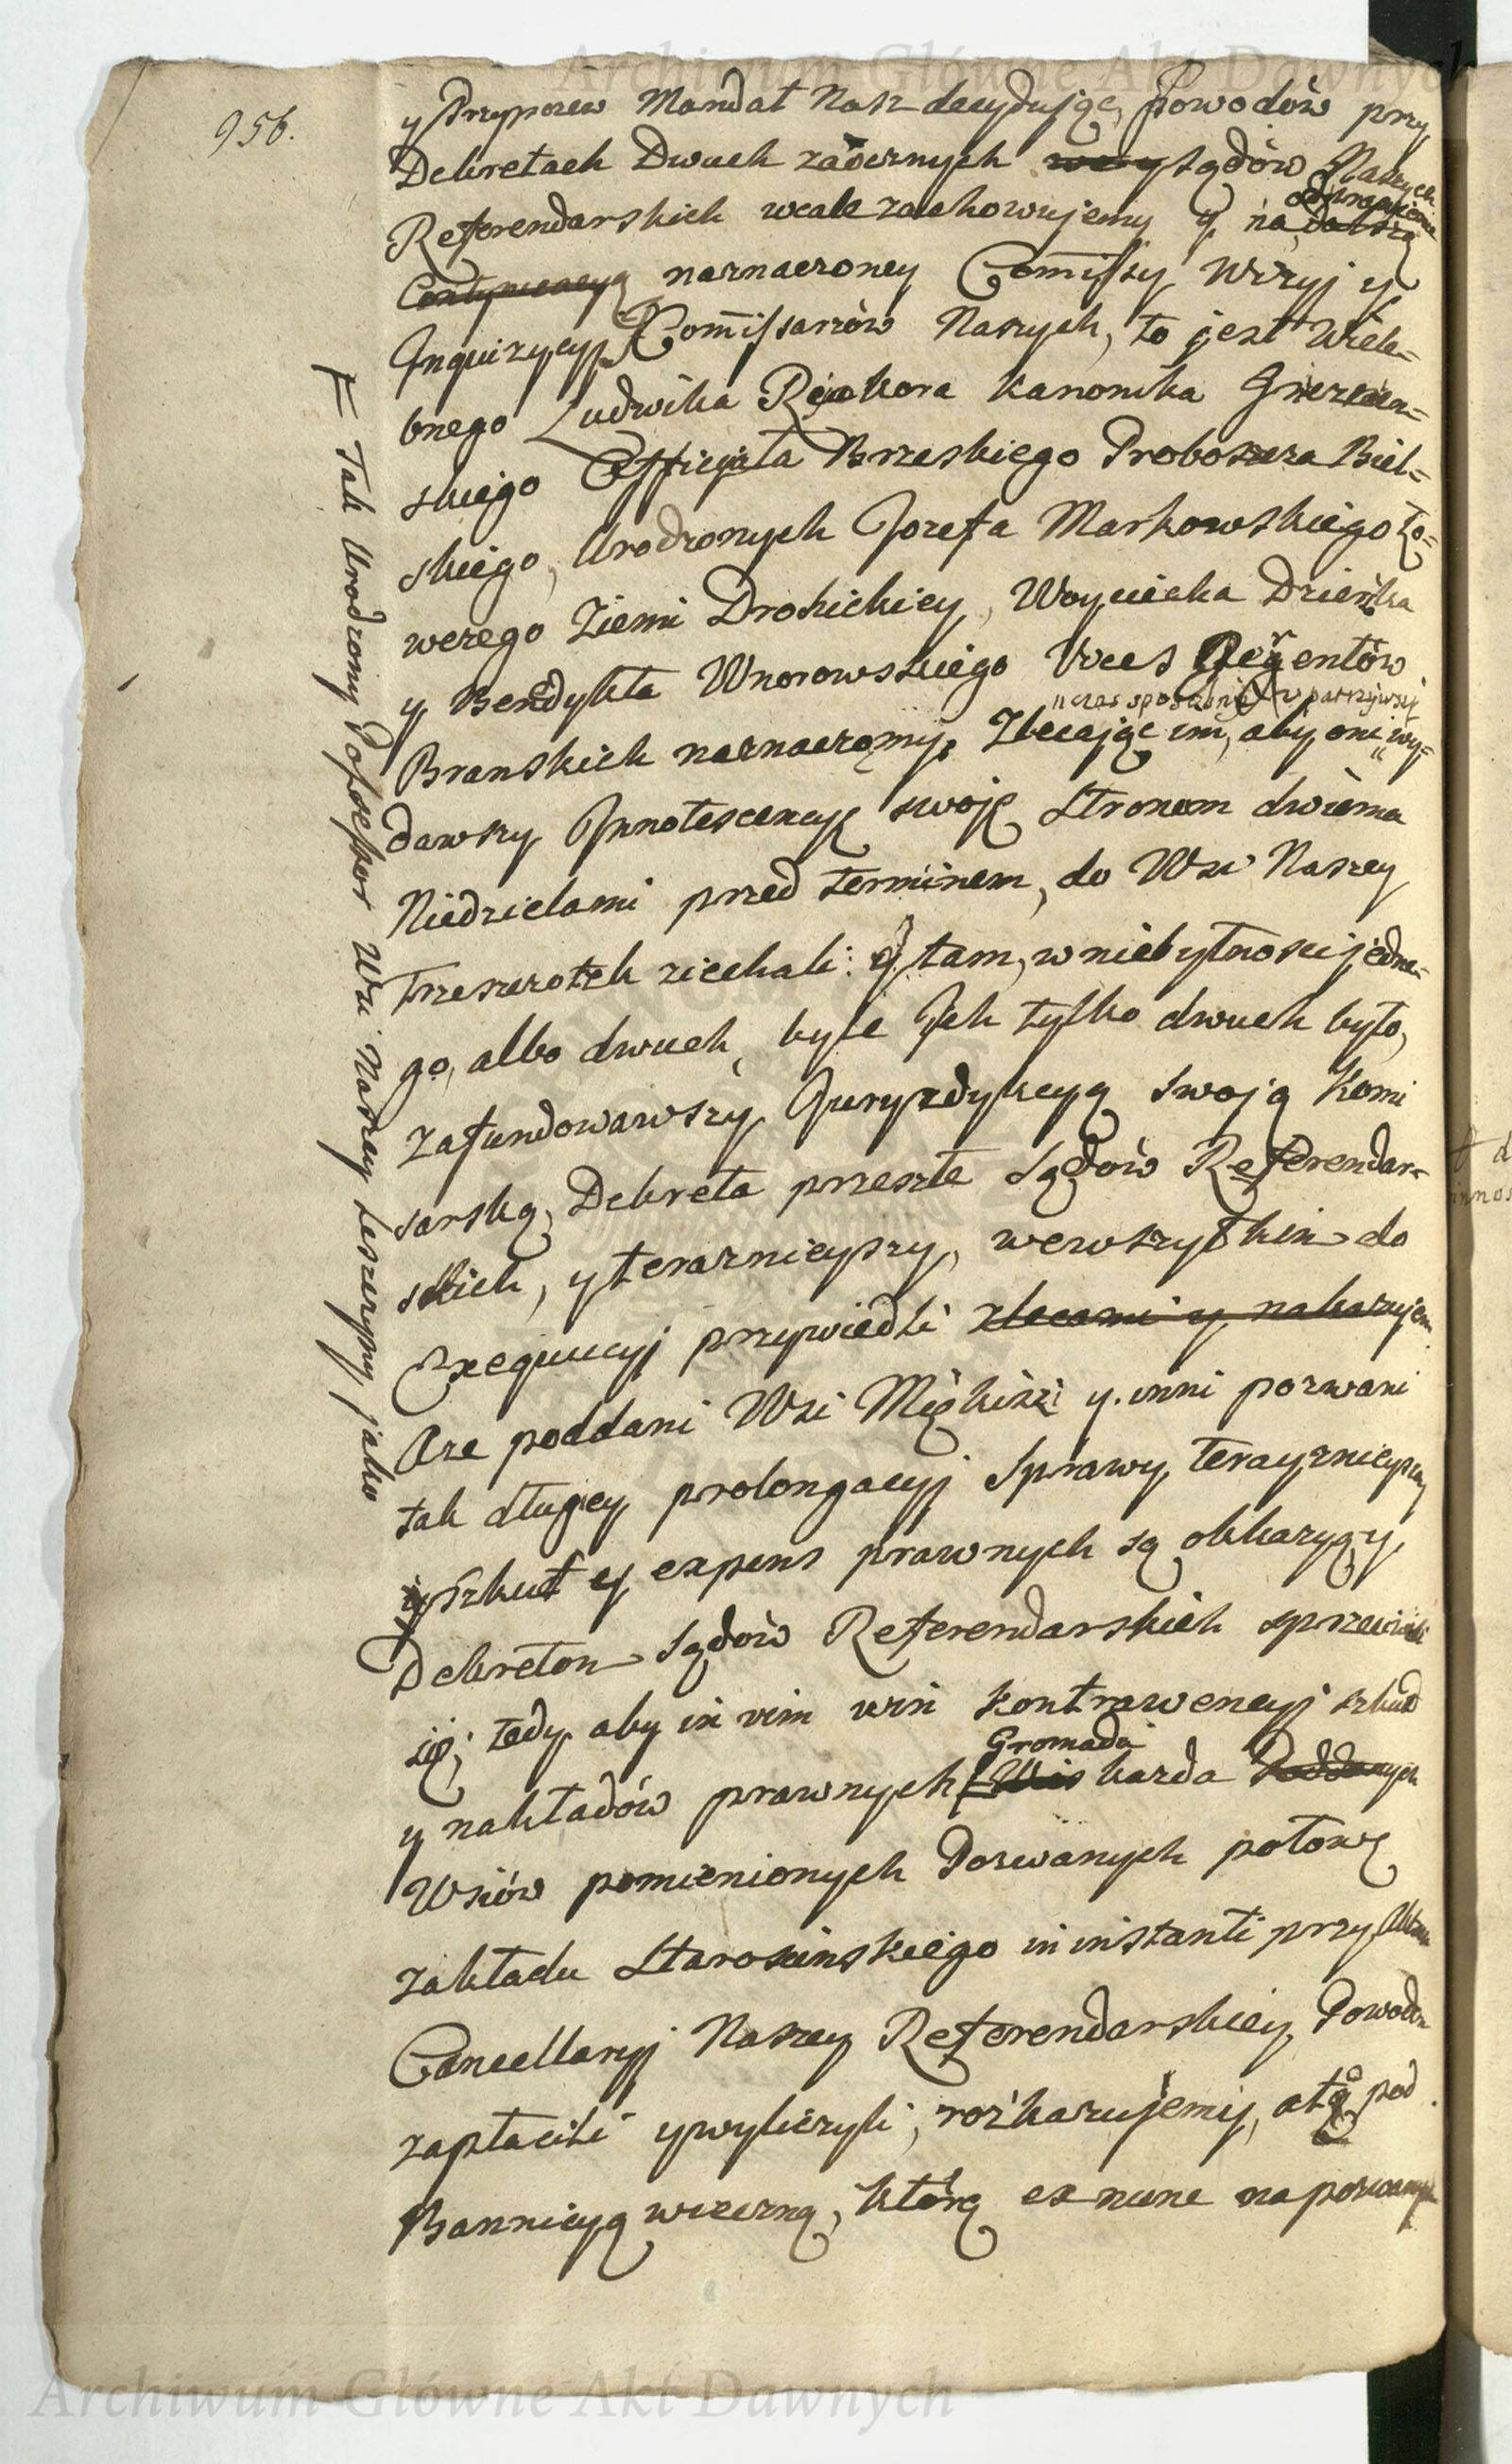 956.
y Przypozew Mandat Nasz decydując, Powodów przy
Dekretach Dwuch zaocznych Sądów Naszych
Referendarskich wcale zachowujemy y na dalszą
Contynuacyą naznaczoney Commissyi Wizyi y
Inquizycyi Commissarzów Naszych, to jest Wiele=
bnego Ludwika Kanonika
skiego Officyała Brzeskiego Proboszcza Biel=
skiego, Urodzonych Jozefa Markowskiego Ło=
wczego Ziemi Drohickiey, Woyciecha Dzieńka
y Benedykta Wnorowskiego Vices Regentów
"czas sposobny upatrzywszy
Branskich naznaczamy, Zlecając im, aby oni "wy=
dawszy Innotescencyę swoję Stronom dwiema
Niedzielami przed terminem, do Wsi Naszey
Trzeszczotek ziechali: y tam, w niebytnosci jedne=
go, albo dwuch, byle Ich tylko dwuch było,
zafundowawszy Juryzdykcyą swoją Komi
sarską, Dekreta przeszłe Sądów Referendar=
skich, y teraznieyszy, wewszystkim do
Exequucyi przywiedli zlecamy y nakazujem
Aze poddani Wsi y inni pozwani
tak długiey prolongacyi Sprawy terayznieyszey
y szkut y expens prawnych są okkazyą, y
Dekretom Sądów Referendarskich sprzeciwili
się; tedy aby in vim win kontrawencyi szkud
Gromada
y nakładów prawnych Wies kazda Poddanych
Wsiów pomienionych Pozwanych połowę
zakładu Starosinskiego in instanti przy Aktach
Cancellaryi Naszey Referendarskiey Powodom
zapłacili y wyliczyli, rozkazujemy, a to pod
Bannicyą wieczną, którą ex nunc na pozwanych
Ⱶ Tak Urodzony Possessor Wsi Naszey Leszczyny jako